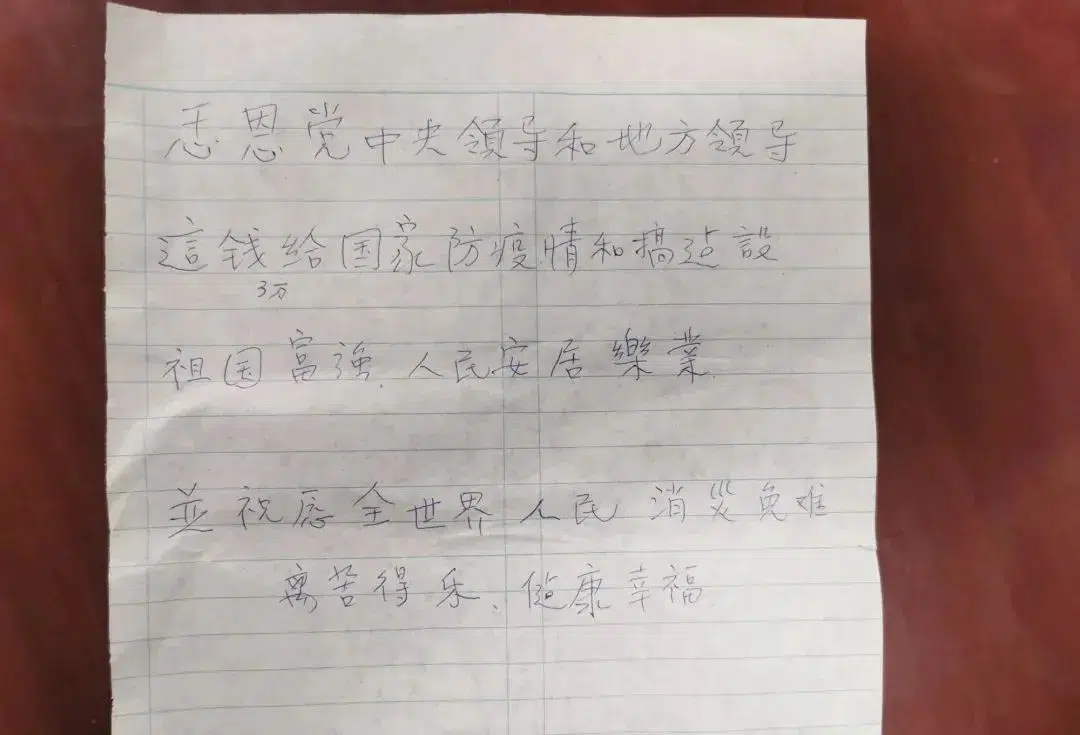 恩党中央領导和地方領导
這钱给国家防疫情和搞建設
3万
祖国富强.人民安居樂業.
並祝愿全世界人民消災免难
离苦得乐、健康幸福